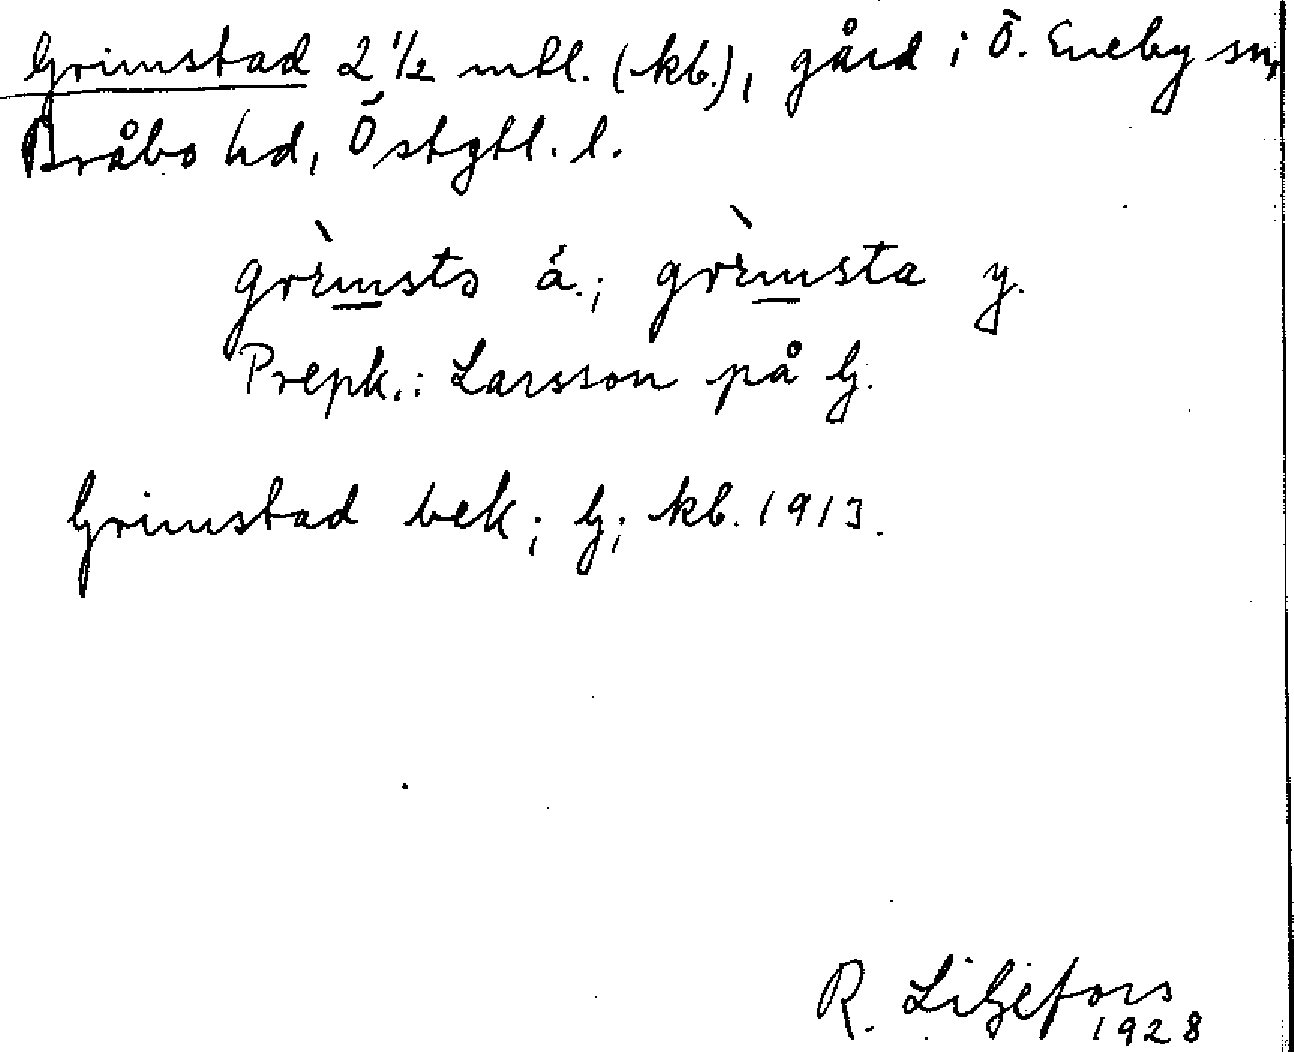 Grimstad 2 1/2 mtl. (kb.), gård i Ö. Eneby sn,
Bråbo hd, Östgtl. l.
grìmsto ä.; grìmsta y.
Prepk.: Larsson på G.
Grimstad bek; G; kb. 1913.
R. Liljefors
1928